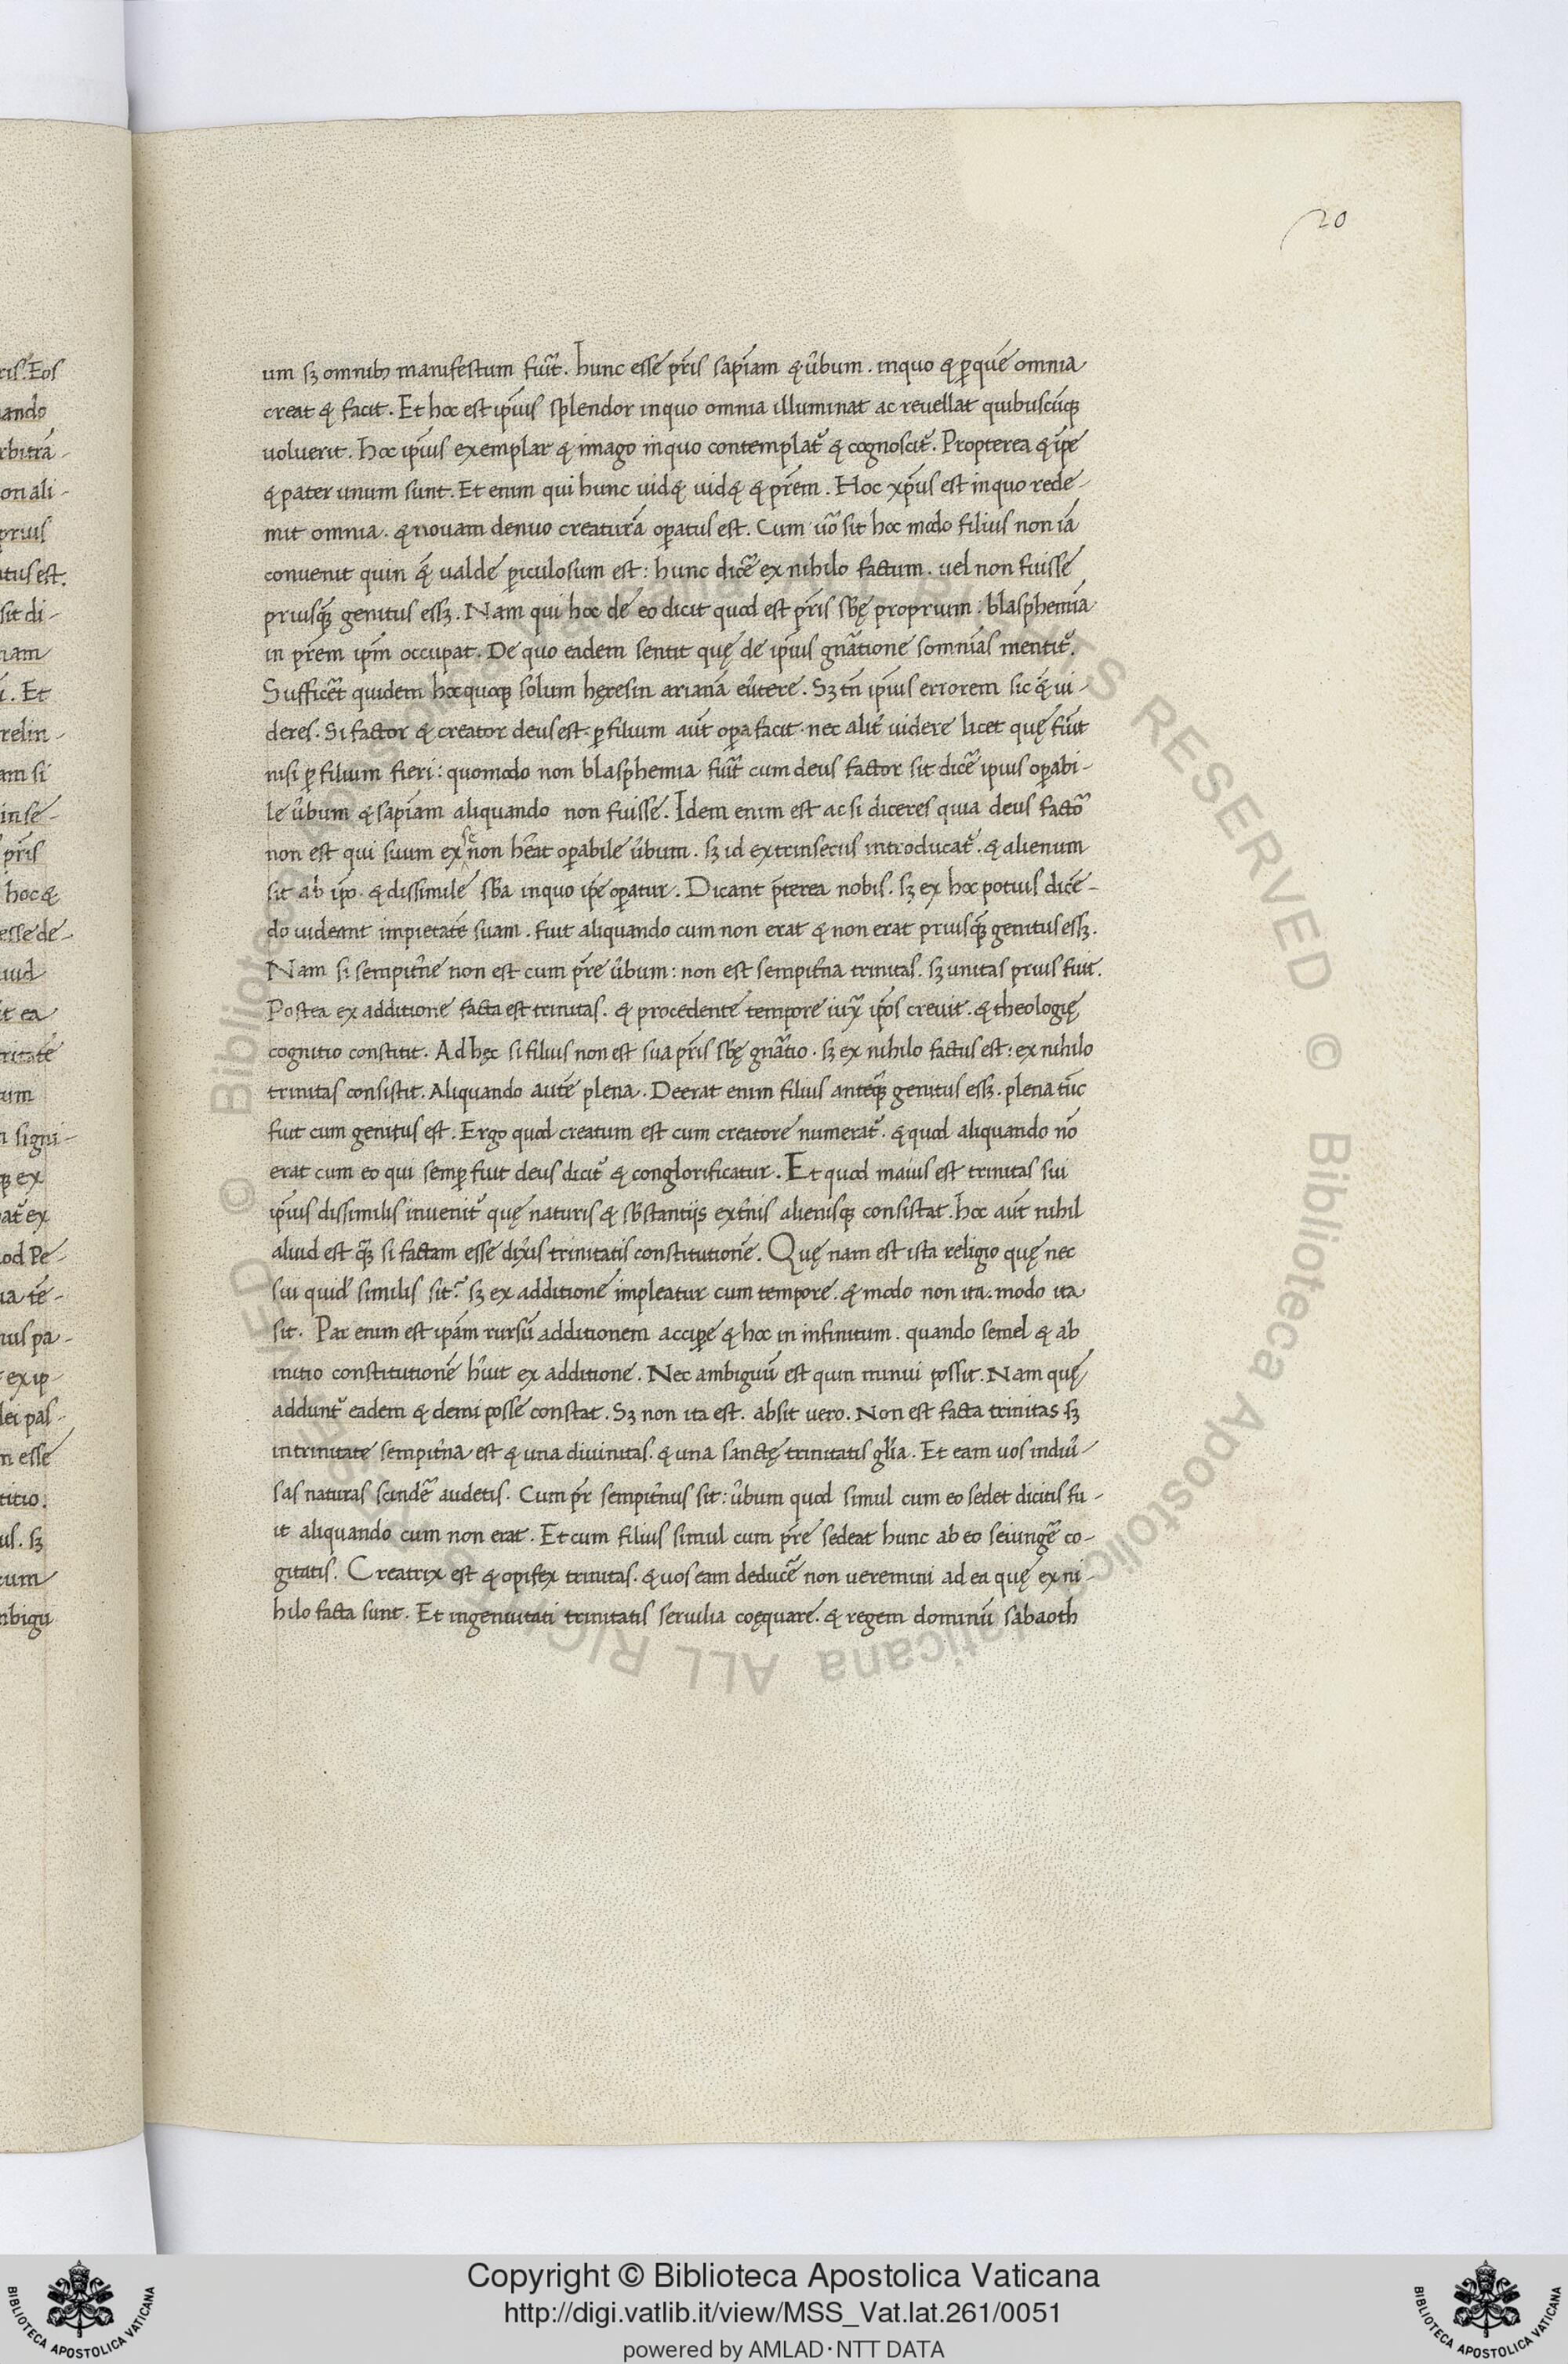 20
um sʒ omnibꝫ manifestum fuit̃. hunc esse pr̃is sapiam̃ & ũbum. inquo & ꝑquẽ omnia
creat & facit. Et hoc est ip̃ius splendor inquo omnia illuminat ac reuellat quibuscũqꝫ
uoluerit. hoc ip̃ius exemplar & imago inquo contemplat̃ & cognoscit̃. Propterea & ip̃e
& pater unum sunt. Et enim qui hunc uid& uid& & pr̃em. Hoc xp̃us est inquo rede-
mit omnia. & nouam denuo creaturã oꝑatus est. Cum uõ sit hoc modo filius non iã
convenit quin &̃ ualde ꝑiculosum est: hunc dicẽ ex nihilo factum. uel non fuisse
priusꝙ̃ genitus essʒ. Nam qui hoc de eo dicit quod est pr̃is sb̃ę proprium. blasphemiã
in pr̃em ip̃m occupat. De quo eadem sentit quę de ip̃ius gñatione somnias mentit̃.
Sufficẽt quidem hocquoqꝫ solum hęresin arianã eũtere. Sʒ tñ ip̃ius errorem sic &̃ ui-
deres. Si factor & creator deus est. ꝑ filium aũt oꝑa facit. nec alit̃ uidere licet quę fiũt
nisi ꝑ filium fieri: quomodo non blasphemia fuit̃ cum deus factor sit dicẽ ipius oꝑabi-
le ũbum & sapiam̃ aliquando non fuisse. Idem enim est ac si diceres quia deus factõ
non est qui suum ex se non hẽat oꝑabile ũbum. sʒ id extrinsecus introducat̃. & alienum
sit ab ip̃o. & dissimile sb̃a inquo ip̃e oꝑatur. Dicant p̃terea nobis. sʒ ex hoc potius dicẽ-
do uideant impietatẽ suam. fuit aliquando cum non erat & non erat priusꝙ̃ genitus essʒ.
Nam si sempit̃ne non est cum pr̃e ũbum: non est sempit̃na trinitas. sʒ unitas prius fuit.
Postea ex additione facta est trinitas. & procedente tempore iux̃ ip̃os crevit. & theologię
cognitio constitit. Ad hęc si filius non est sua pr̃is sb̃ę gñatio. sʒ ex nihilo factus est: ex nihilo
trinitas consistit. Aliquando autẽ plena. Deerat enim filius anteꝙ̃ genitus essʒ. plena tũc
fuit cum genitus est. Ergo quod creatum est cum creatore numerat̃. & quod aliquando nõ
erat cum eo qui semꝑ fuit deus dicit̃ & conglorificatur. Et quod maius est trinitas sui
ip̃ius dissimilis invenit̃ quę naturis & sb̃stantijs ext̃nis alienisqꝫ consistat. hoc aũt nihil
aliud est ꝙ̃ si factam esse dix̃is trinitatis constitutionẽ. Quę nam est ista religio quę nec
sui quid̃ similis sit? sʒ ex additione impleatur cum tempore. & modo non ita. modo ita
sit. Par enim est ipãm rursũ additionem acciꝑe & hoc in infinitum. quando semel & ab
initio constitutionẽ h̃uit ex additione. Nec ambiguũ est quin minui possit. Nam quę
addunt̃ eadem & demi posse constat. Sʒ non ita est. absit vero. Non est facta trinitas sʒ
intrinitate sempit̃na est & una divinitas. & una sanctę trinitatis gl̃ia. Et eam uos indiui-
sas naturas scindẽ audetis. Cum pr̃ sempit̃nus sit: ũbum quod simul cum eo sedet dicitis fu-
it aliquando cum non erat. Et cum filius simul cum pr̃e sedeat hunc ab eo seiungẽ co-
gitatis. Creatrix est & opifex trinitas. & uos eam deducẽ non ueremini ad ea quę ex ni-
hilo facta sunt. Et ingenuitati trinitatis seruilia coęquare. & regem dominũ sabaoth
Copyright © Biblioteca Apostolica Vaticana
http://digi.vatlib.it/view/MSS_Vat.lat.261/0051
powered by AMLAD·NTT DATA